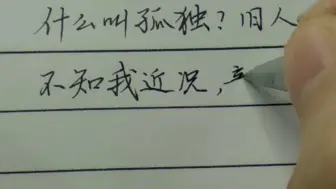 什么叫孤独？旧人
不知我近况，